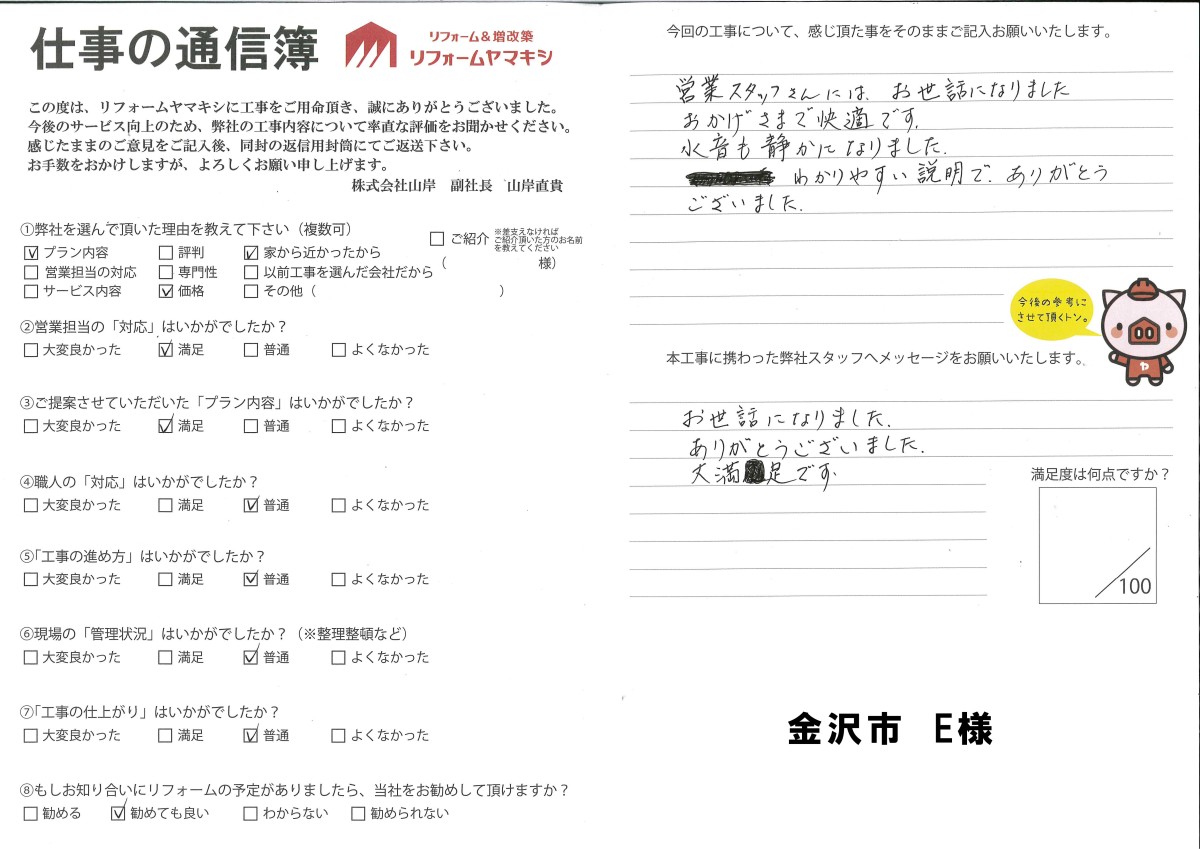 仕事の通信簿
リフォーム&増改築
リフォームヤマキシ
この度は、リフォームヤマキシに工事をご用命頂き、誠にありがとうございました。
今後のサービス向上のため、弊社の工事内容について率直な評価をお聞かせください。
感じたままのご意見をご記入後、同封の返信用封筒にてご返送下さい。
お手数をおかけしますが、よろしくお願い申し上げます。
株式会社山岸 副社長 山岸直貴
①弊社を選んで頂いた理由を教えて下さい(複数可)
☑プラン内容 □評判 ☑家から近かったから
□営業担当の対応 □専門性 □以前工事を選んだ会社だから
□サービス内容 ☑価格 □その他( )
□ご紹介 ※差支えなければ
ご紹介頂いた方のお名前
を教えてください
( 様)
②営業担当の「対応」はいかがでしたか?
□大変良かった ☑満足 □普通 □よくなかった
③ご提案させていただいた「プラン内容」はいかがでしたか?
□大変良かった ☑満足 □普通 □よくなかった
④職人の「対応」はいかがでしたか?
□大変良かった □満足 ☑普通 □よくなかった
⑤「工事の進め方」はいかがでしたか?
□大変良かった □満足 ☑普通 □よくなかった
⑥現場の「管理状況」はいかがでしたか?(※整理整頓など)
□大変良かった □満足 ☑普通 □よくなかった
⑦「工事の仕上がり」はいかがでしたか?
□大変良かった □満足 ☑普通 □よくなかった
⑧もしお知り合いにリフォームの予定がありましたら、当社をお勧めして頂けますか?
□勧める ☑勧めても良い □わからない □勧められない
今回の工事について、感じ頂た事をそのままご記入お願いいたします。
営業スタッフさんには、お世話になりました
おかげさまで快適です.
水音も静かになりました.
わかりやすい説明で、ありがとう
ございました.
今後の参考に
させて頂くトン。
ヤ
本工事に携わった弊社スタッフへメッセージをお願いいたします。
お世話になりました.
ありがとうございました.
大満足です.
満足度は何点ですか?
/100
金沢市 E様